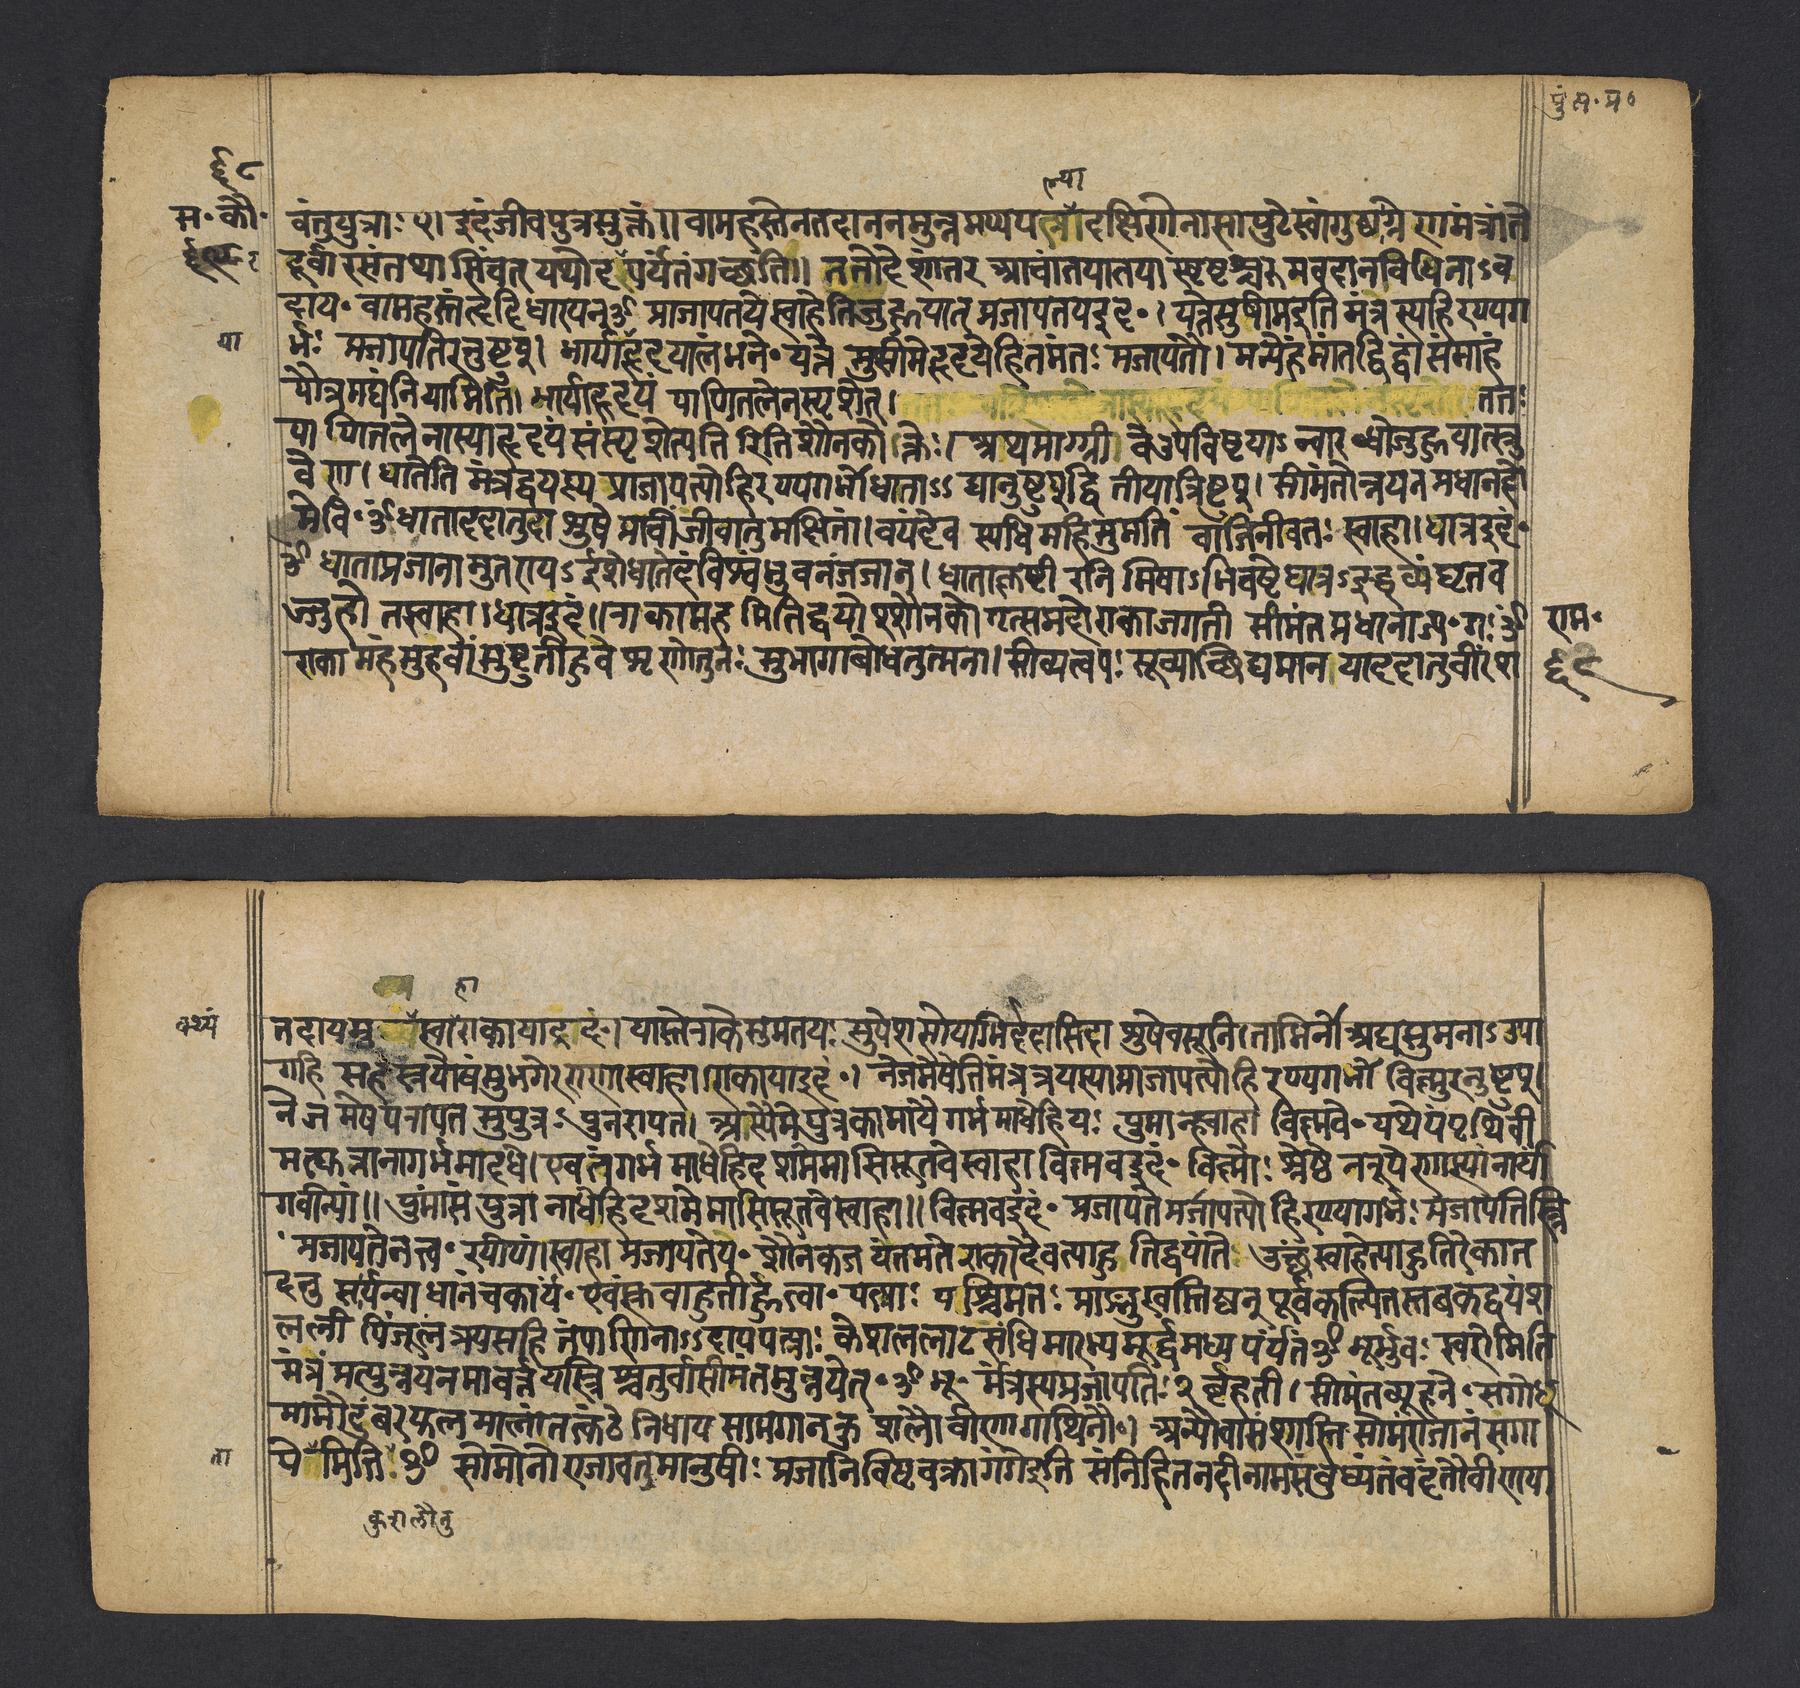 पुं स॰ प्र॰
६८
न्या
स॰ कौ॰
वंतुपुत्राः ५। इदंजीवपुत्रसुक्तं॥ वामहस्तेनतदाननमुन्नमय्यप दक्षिणेनासापुटेस्वांगुष्ठाग्रे णामंत्रांते
दूर्वारसंतथासिंचेत् यथोदरपर्यंतंगच्छति॥ ततोदेशांतर आचांतयातया मवदानविधिनाऽव
दाय॰ वामहस्तंहृदिधारयन्ॐ प्राजापतये स्वाहेतिजुहुयात् प्रजापतयइदं॰। यत्तेसुषीमइतिमंत्र स्यहिरण्यग
या
र्भः प्रजापतिरनुष्टुप्। भार्याहृदयालंभने॰ यत्ते सुसीमेहृदयेहितमंतः प्रजापतौ। मन्येहंमांतद्विद्वांसंमाहं
पौत्रमघंनियामिति। भार्याहृदयं पाणितलेनस्पृशेत्। ततः
पाणितलेनास्याहृदयं संस्पृशेत्पति रितिशौनकोक्तेः। अथमाग्नी वेउपविष्टया ऽन्वारब्धोजुहुयात्स्रु
वेण। धातेति मंत्रद्वयस्य प्राजापत्योहिरण्यगर्भोधाताऽऽ द्यानुष्टुप्द्वितीयात्रिष्टुप्। सीमंतोन्नयनप्रधानहो
मेवि॰ॐधाताददातुदाशुषे प्राचींजीवातुमक्षितां। वयंदेव स्यधीमहिसुमतिं वाजिनीवतः स्वाहा। धात्रइदं॰
ॐ धाताप्रजानामुतराय ऽईशेधातेदंविश्वंभुवनंजजान। धाताकृष्टीरनिमिषाऽभिचष्टेधात्रऽइद्धव्यंघृतव
ज्जुहोतस्वाहा। धात्रइदं॥ राकामहमितिद्वयोश्शौनकोगृत्समदोराकाजगती सीमंतप्रधानाज्य॰ गः ॐ
राम॰
राकामहंसुहवांसुष्टुतीहुवे शृणोतुनः सुभगाबोधतुत्मना। सीव्यत्वपः सूच्याच्छिद्यमानयाददातुवीरंश
६८
हा
तदायमु स्वाराकायाइदं। यास्तेराकेसुमतयः सुपेशसोयाभिर्ददासिदाशुषेवसूनि। ताभिर्नोअद्यसुमनाऽउपा
गहि सहस्रपोषंसुभगेरराणास्वाहा। राकायाइदं॰। नेजमेषेतिमंत्रत्रयस्यप्राजापत्योहिरण्यगर्भो विष्णुरनुष्टुप्।
नेजमेषपरापत सुपुत्रः पुनरापत। अस्यैमेपुत्रकामायै गर्भमाधेहियः पुमान्स्वाहा विष्णवे॰ यथेयंपृथिवी
मह्युत्तानागर्भमादधे। एवंतंगर्भ माधेहिदशमेमासिसूतवेस्वाहा विष्णवइदं॰ विष्णोः श्रेष्ठे नरूपेणास्यांनार्यां
गवीन्यां॥ पुमांसं पुत्रा नाधेहिदशमेमासिसूतवेस्वाहा॥ विष्णवइदं॰ प्रजापतेप्रजापत्यो हिरण्यगर्भः प्रजापतिस्त्रि
प्रजापतेनत्व॰ रयीणां। स्वाहा प्रजापतये॰ शौनकजयंतमते राकादैवत्याहुतिद्वयांते स्वाहेत्याहुतिरेकात
दनु सर्पंन्वाधानेचकार्यं॰ एवंसुक्वाहुतीर्हुत्वा॰ पत्न्याः पश्चिमतः प्राङ्मुखस्तिष्ठन् पूर्वकल्पितस्तबकद्वयंश
लली पिंजूलंत्रयसहितंपाणिनाऽऽदायपत्न्याः केशललाटसंधिमारभ्यमूर्द्धमध्यपर्यंतंॐ भूर्भुवः स्वरोमिति
मंत्रं प्रत्युन्नयनमावर्त्तयंस्त्रिश्चतुर्वासीमंतमुन्नयेत्॰ ॐ भू॰ मंत्रस्यप्रजापतिः २ र्बृहती। सीमंतव्यूहने॰
मामौदुंबरफलमालांतत्कंठे निधाय सामगान् कुशलौ वीणागाथिनौ। अन्यौवासंशास्ति सोमंराजानं संगा
ता
ये मिति ॐ सोमोनोराजावतुमानुषीः प्रजानिविष्टचक्रागंगेइति संनिहितनदीनाम वदंतौवीणाया
कुशलौतु